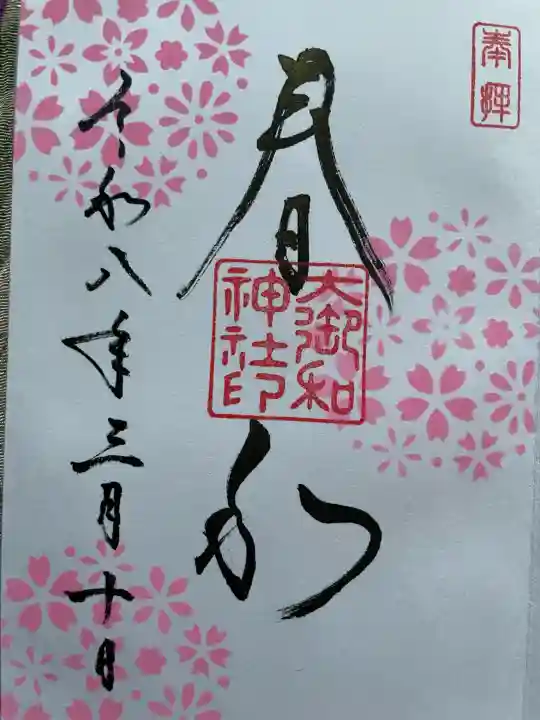 奉拝
春和
大御和
神社印
令和八年三月十日